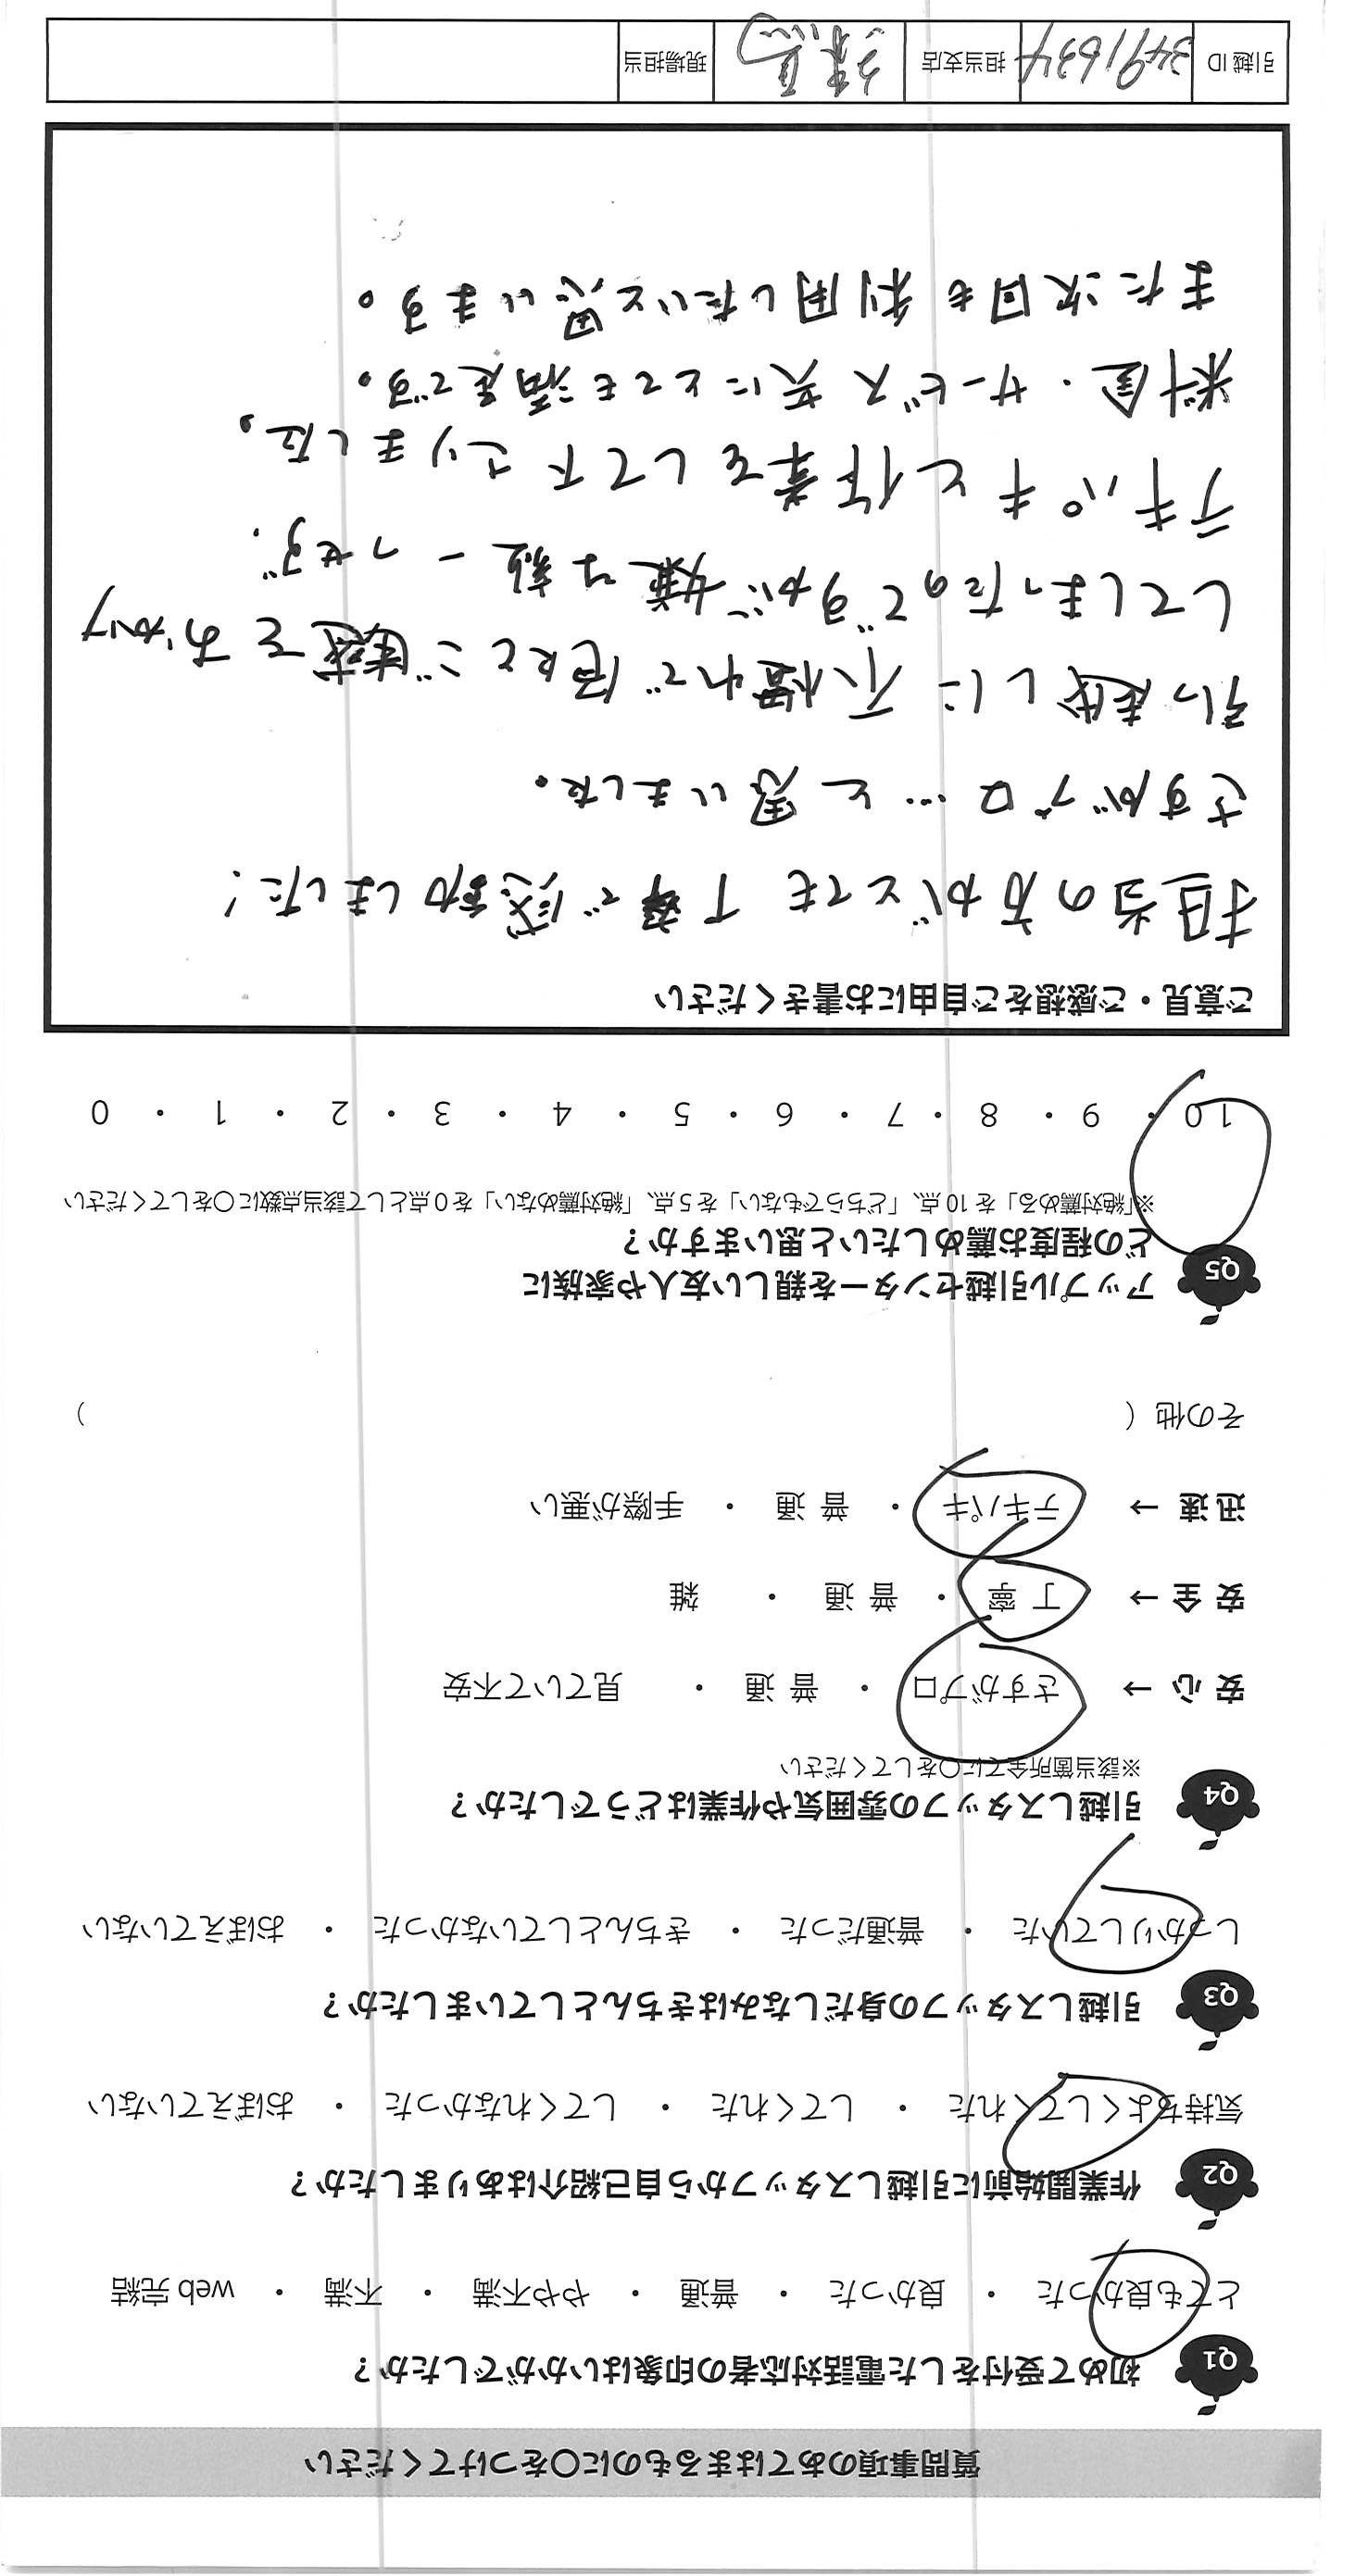 質問事項のあてはまるものに○をつけてください
Q1 初めて受付をした電話対応者の印象はいかがでしたか？
とても良かった ・ 良かった ・ 普通 ・ やや不満 ・ 不満 ・ web 完結
Q2 作業開始前に引越しスタッフから自己紹介はありましたか？
気持ちよくしてくれた ・ してくれた ・ してくれなかった ・ おぼえていない
Q3 引越しスタッフの身だしなみはきちんとしていましたか？
しっかりしていた ・ 普通だった ・ きちんとしていなかった ・ おぼえていない
Q4 引越しスタッフの雰囲気や作業はどうでしたか？
※該当箇所全てに○をしてください
安心 → さすがプロ ・ 普通 ・ 見ていて不安
安全 → 丁寧 ・ 普通 ・ 雑
迅速 → テキパキ ・ 普通 ・ 手際が悪い
その他（ ）
Q5 アップル引越センターを親しい友人や家族に
どの程度お薦めしたいと思いますか？
※「絶対薦める」を 10 点、「どちらでもない」を 5 点、「絶対薦めない」を 0 点として該当点数に○をしてください
10 ・ 9 ・ 8 ・ 7 ・ 6 ・ 5 ・ 4 ・ 3 ・ 2 ・ 1 ・ 0
ご意見・ご感想をご自由にお書きください
担当の方がとても丁寧で感動しました！
さすがプロ…と思いました。
引っ越しに不慣れで色々とご迷惑をおかけ
してしまったのですが嫌な顔一つせず、
テキパキと作業をして下さりました。
料金・サービス共にとても満足です。
また次回も利用したいと思います。
引越 ID 3491634 担当支店 現場担当